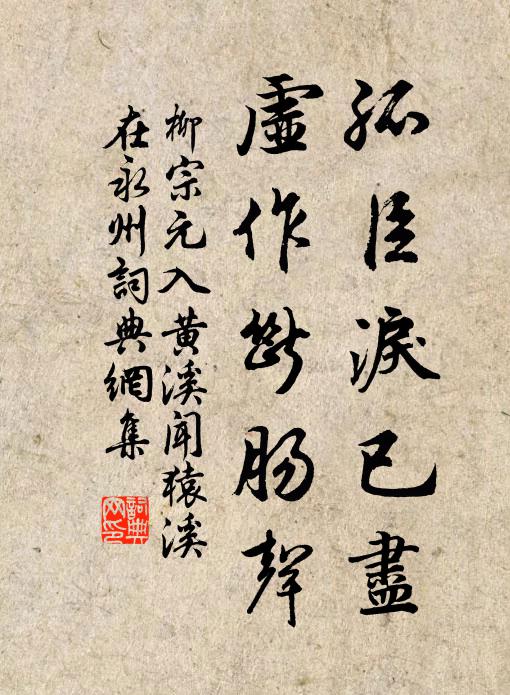 孤臣淚已盡
虛作斷腸聲
柳宗元入黃溪聞猿溪
在永州詞典網集
詞典
网印